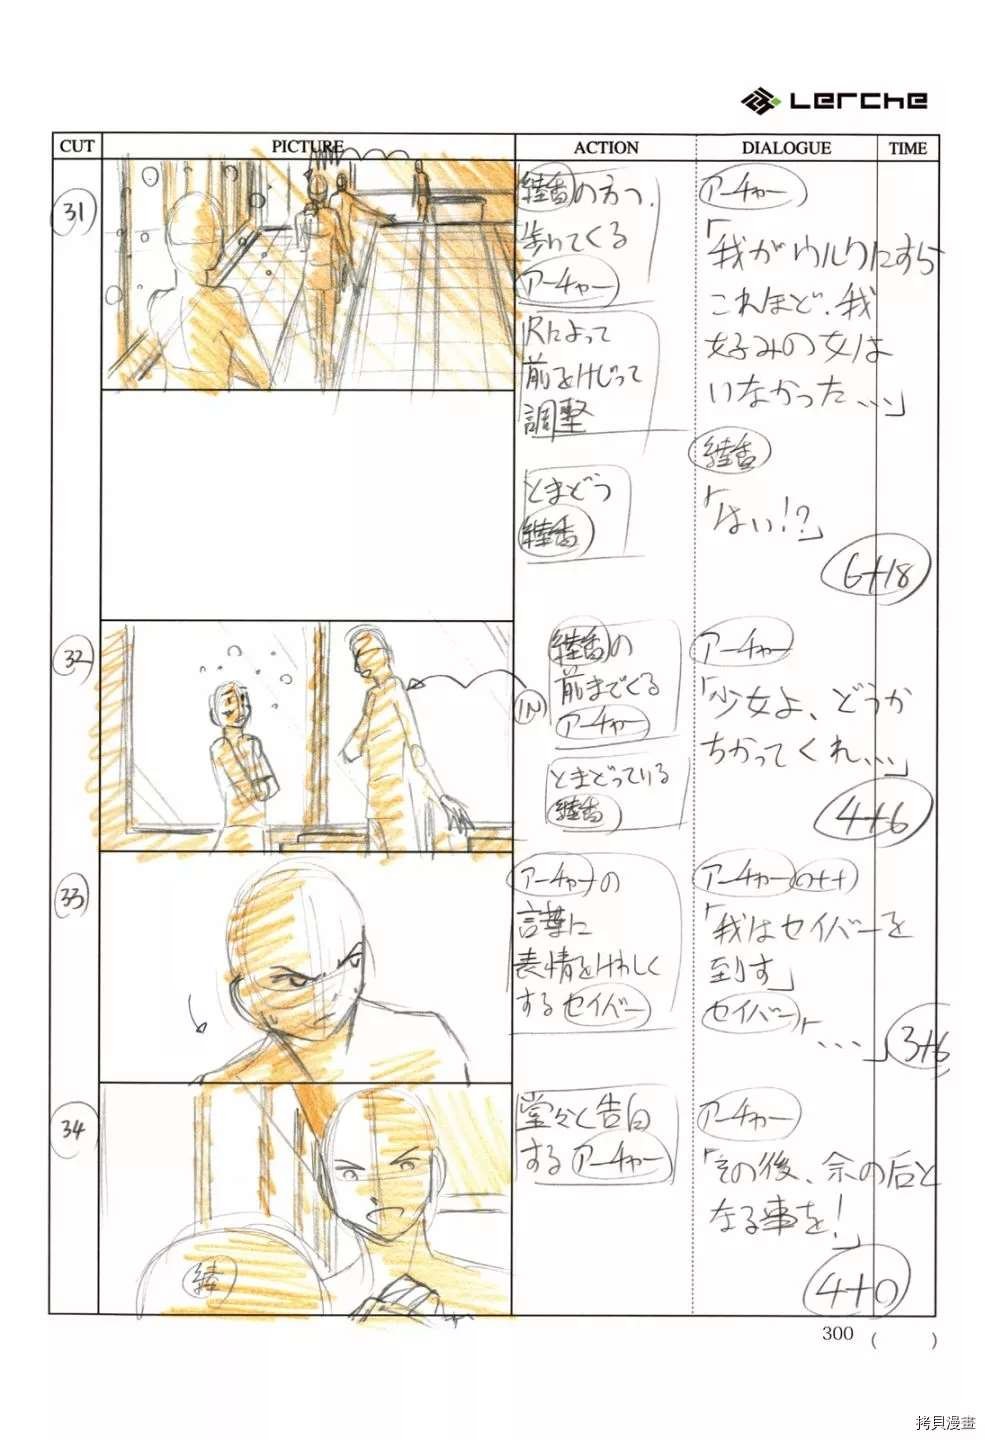 Lerche
CUT
PICTURE
ACTION
DIALOGUE
TIME
31
綾香の方へ
歩いてくる
アーチャー
尺によって
前をけずって
調整
とまどう
綾香
アーチャー
「我がウルクにすら
これほど、我
好みの女は
いなかった…」
綾香
「はい!?」
6+18
32
IN
綾香の
前までくる
アーチャー
とまどっている
綾香
アーチャー
「少女よ、どうか
ちかってくれ…」
4+6
33
アーチャーの
言葉に
表情をけわしく
するセイバー
アーチャー off
「我はセイバーを
到す」
セイバー「…」
3+6
34
綾
堂々と告白
するアーチャー
アーチャー
「その後、余の后と
なる事を!」
4+0
300 ( )
拷貝漫畫